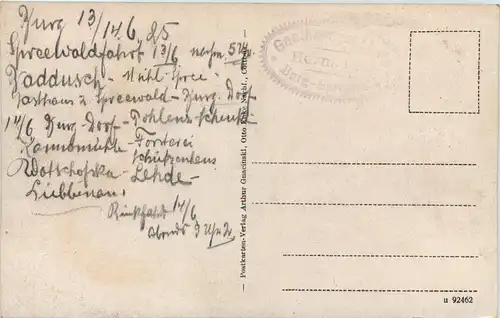 Burg 13/14/6. 25
Spreewaldfahrt 13/6 nachm 5 Uhr
Raddusch - Mühl Spree -
Gasthaus z Spreewald - Burg. Dorf
14/6 Burg - Dorf - Pohlenz - schenke
Kannomühle - Försterei
Schützenhaus
Wotschofska - Lehde -
Lübbenau.
Rückfahrt 14/6
Abends 9 Uhr
— Postkarten-Verlag Arthur Guncinski, Otto
Burg -
u 92462